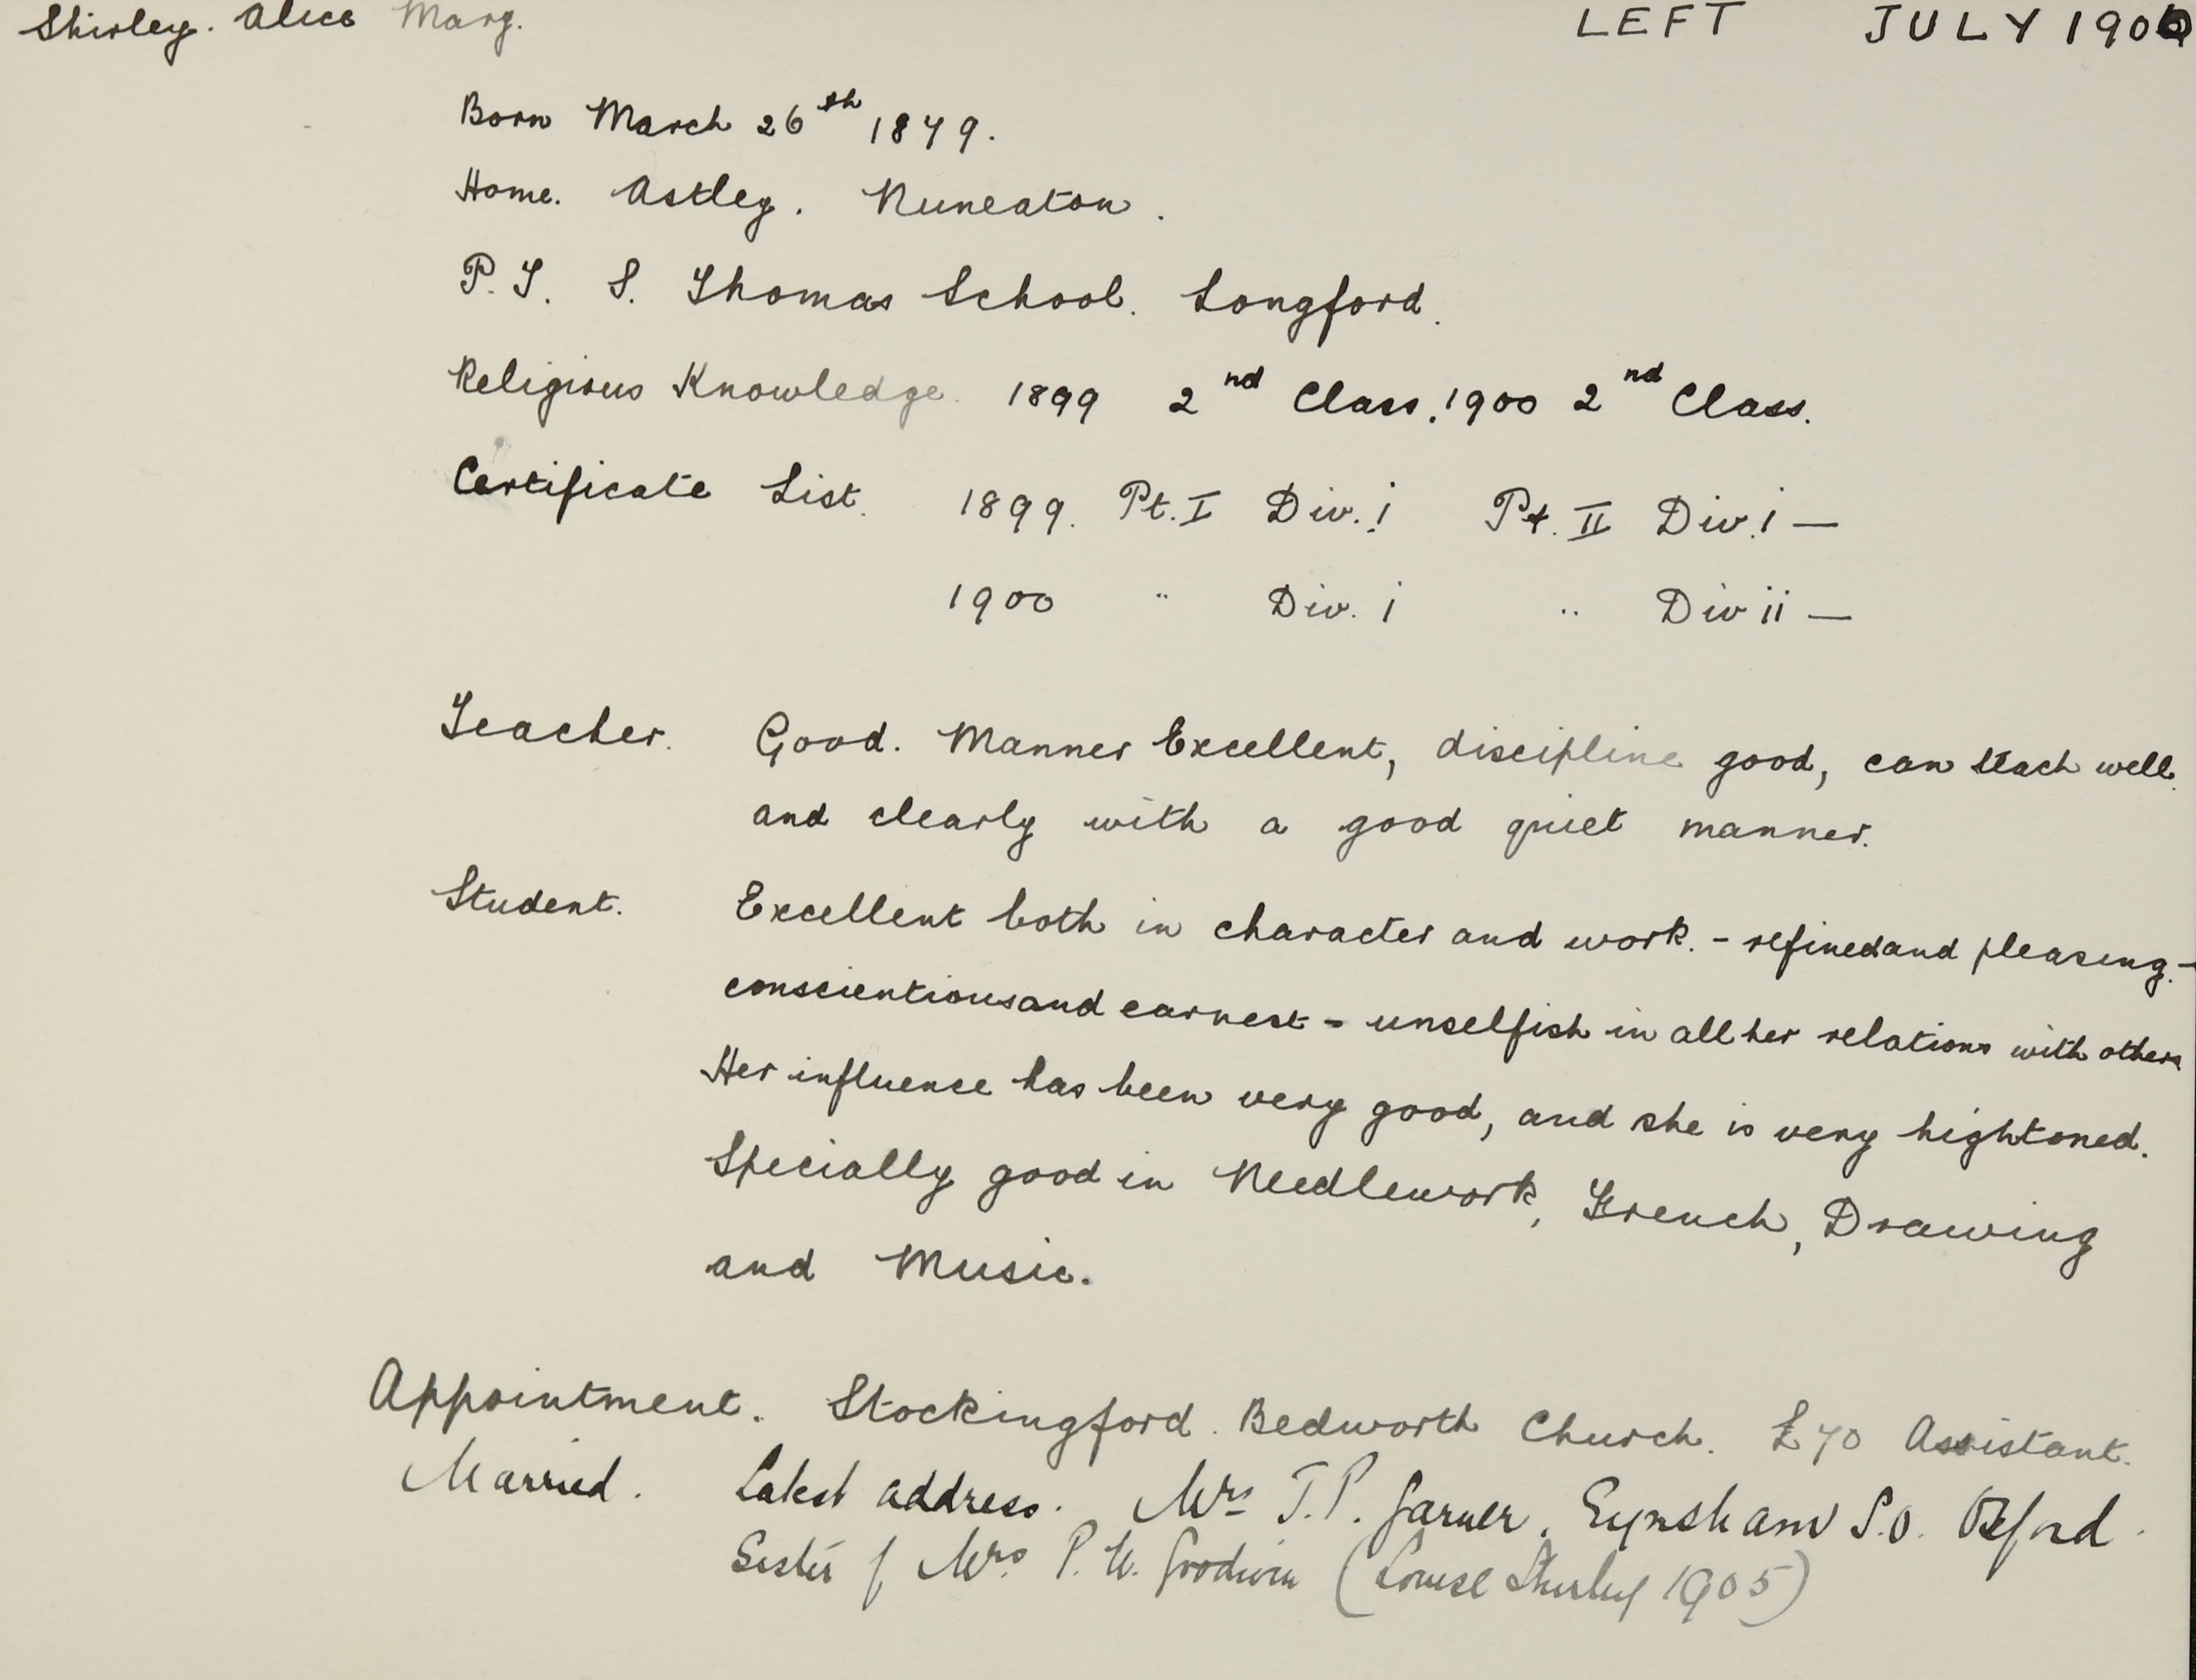 Shirley. Alice Marg. LEFT JULY 1900
Born March 26th 1879.
Home. Astley. Nuneaton.
P.T. S. Thomas School. Longford.
Religious Knowledge. 1899 2nd Class. 1900 2nd Class.
Certificate List. 1899. Pt. I Div. i Pt. II Div. i —
1900 " Div. i " Div ii —
Teacher. Good. Manner Excellent, discipline good, can teach well
and clearly with a good quiet manner.
Student. Excellent both in character and work. - refined and pleasing. -
conscientious and earnest - unselfish in all her relations with others
Her influence has been very good, and she is very hightoned.
Specially good in Needlework, French, Drawing
and Music.
Appointment. Stockingford. Bedworth Church. £70 Assistant.
Married. Latest address. Mrs T.P. Garner. Eynsham S.O. Oxford.
Sister of Mrs. P. W. Goodwin (Louise Shirley 1905)